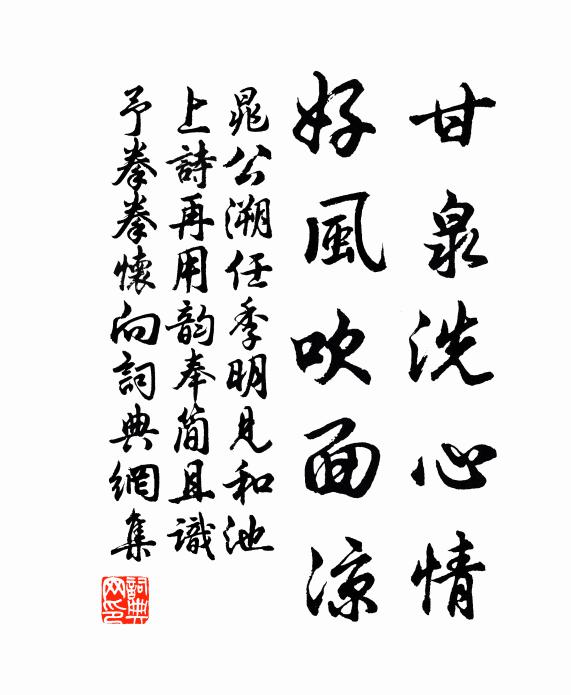 甘泉洗心情
好風吹面涼
晁公溯任季明見和池
上詩再用韵奉簡且識
予拳拳懷向詞典網集
詞典網印